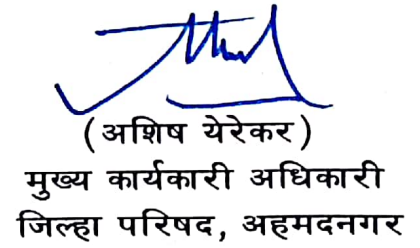 (अशिष येरेकर)
मुख्य कार्यकारी अधिकारी
जिल्हा परिषद, अहमदनगर